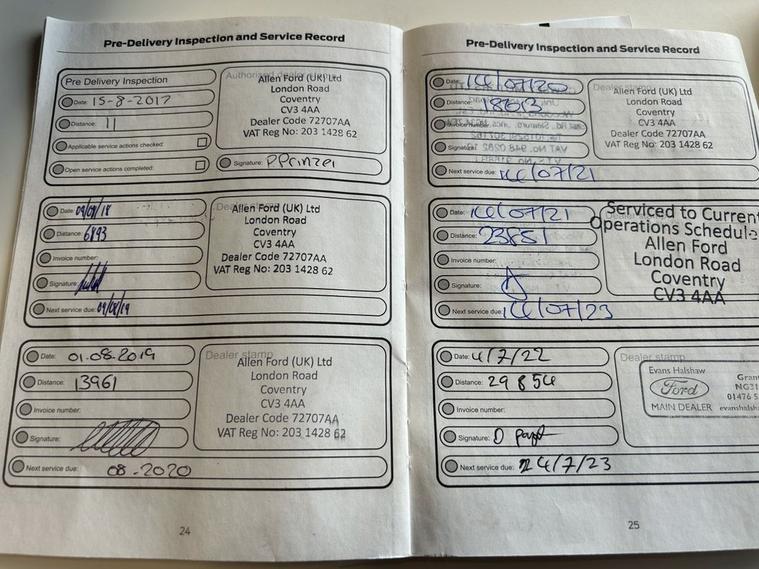 Pre-Delivery Inspection and Service Record
Pre Delivery Inspection
Date: 15-8-2017
Distance: 11
Applicable service actions checked:
Open service actions completed:
Authorised dealer
Allen Ford (UK) Ltd
London Road
Coventry
CV3 4AA
Dealer Code 72707AA
VAT Reg No: 203 1428 62
Signature: P.Prinzei
Date: 09/08/18
Distance: 6893
Invoice number:
Signature:
Next service due: 09/08/19
Dealer
Allen Ford (UK) Ltd
London Road
Coventry
CV3 4AA
Dealer Code 72707AA
VAT Reg No: 203 1428 62
Date: 01.08.2019
Distance: 13961
Invoice number:
Signature:
Next service due: 08-2020
Dealer stamp
Allen Ford (UK) Ltd
London Road
Coventry
CV3 4AA
Dealer Code 72707AA
VAT Reg No: 203 1428 62
24
Pre-Delivery Inspection and Service Record
Date: /07/20
Distance:
Signature:
Next service due: /07/21
Dealer
Allen Ford (UK) Ltd
London Road
Coventry
CV3 4AA
Dealer Code 72707AA
VAT Reg No: 203 1428 62
Date: /07/21
Distance: 23851
Invoice number:
Signature:
Next service due: /07/23
Serviced to Current
Operations Schedule
Allen Ford
London Road
Coventry
CV3 4AA
Date: 4/7/22
Distance: 29854
Invoice number:
Signature: D
Next service due: 4/7/23
Dealer stamp
Evans Halshaw
Ford
MAIN DEALER
Gran
NG31
01476 5
evanshalsh
25